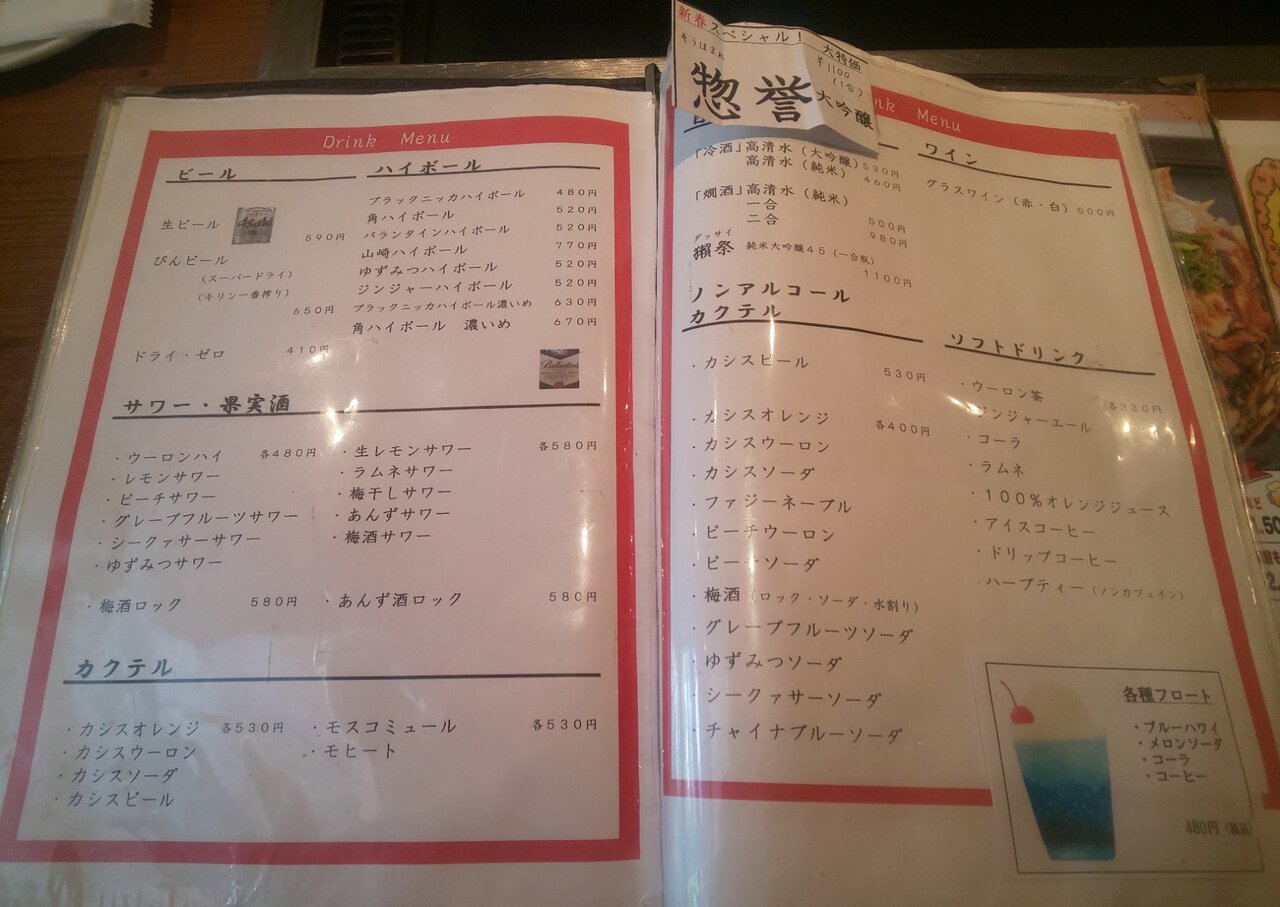 Drink Menu
ビール
生ビール
Asahi
590円
びんビール
(スーパードライ)
(キリン一番搾り)
650円
ドライ・ゼロ 410円
ハイボール
ブラックニッカハイボール 480円
角ハイボール 520円
バランタインハイボール 520円
山崎ハイボール 770円
ゆずみつハイボール 520円
ジンジャーハイボール 520円
ブラックニッカハイボール濃いめ 630円
角ハイボール 濃いめ 670円
Ballantine's
サワー・果実酒
・ウーロンハイ 各480円
・レモンサワー
・ピーチサワー
・グレープフルーツサワー
・シークァサーサワー
・ゆずみつサワー
・生レモンサワー 各580円
・ラムネサワー
・梅干しサワー
・あんずサワー
・梅酒サワー
・梅酒ロック 580円
・あんず酒ロック 580円
カクテル
・カシスオレンジ 各530円
・カシスウーロン
・カシスソーダ
・カシスビール
・モスコミュール 各530円
・モヒート
新春スペシャル!
大特価
¥1100
(1合)
そうほまれ
惣誉 大吟醸
nk Menu
「冷酒」高清水(大吟醸)530円
高清水(純米) 460円
「燗酒」高清水(純米)
一合 500円
二合 980円
ダッサイ
獺祭 純米大吟醸45(一合瓶)
1100円
ワイン
グラスワイン(赤・白)500円
ノンアルコール
カクテル
・カシスビール 530円
・カシスオレンジ 各400円
・カシスウーロン
・カシスソーダ
・ファジーネーブル
・ピーチウーロン
・ピーチソーダ
・梅酒(ロック・ソーダ・水割り)
・グレープフルーツソーダ
・ゆずみつソーダ
・シークァサーソーダ
・チャイナブルーソーダ
ソフトドリンク
・ウーロン茶 各330円
・ジンジャーエール
・コーラ
・ラムネ
・100%オレンジジュース
・アイスコーヒー
・ドリップコーヒー
・ハーブティー(ノンカフェイン)
各種フロート
・ブルーハワイ
・メロンソーダ
・コーラ
・コーヒー
480円(税込)